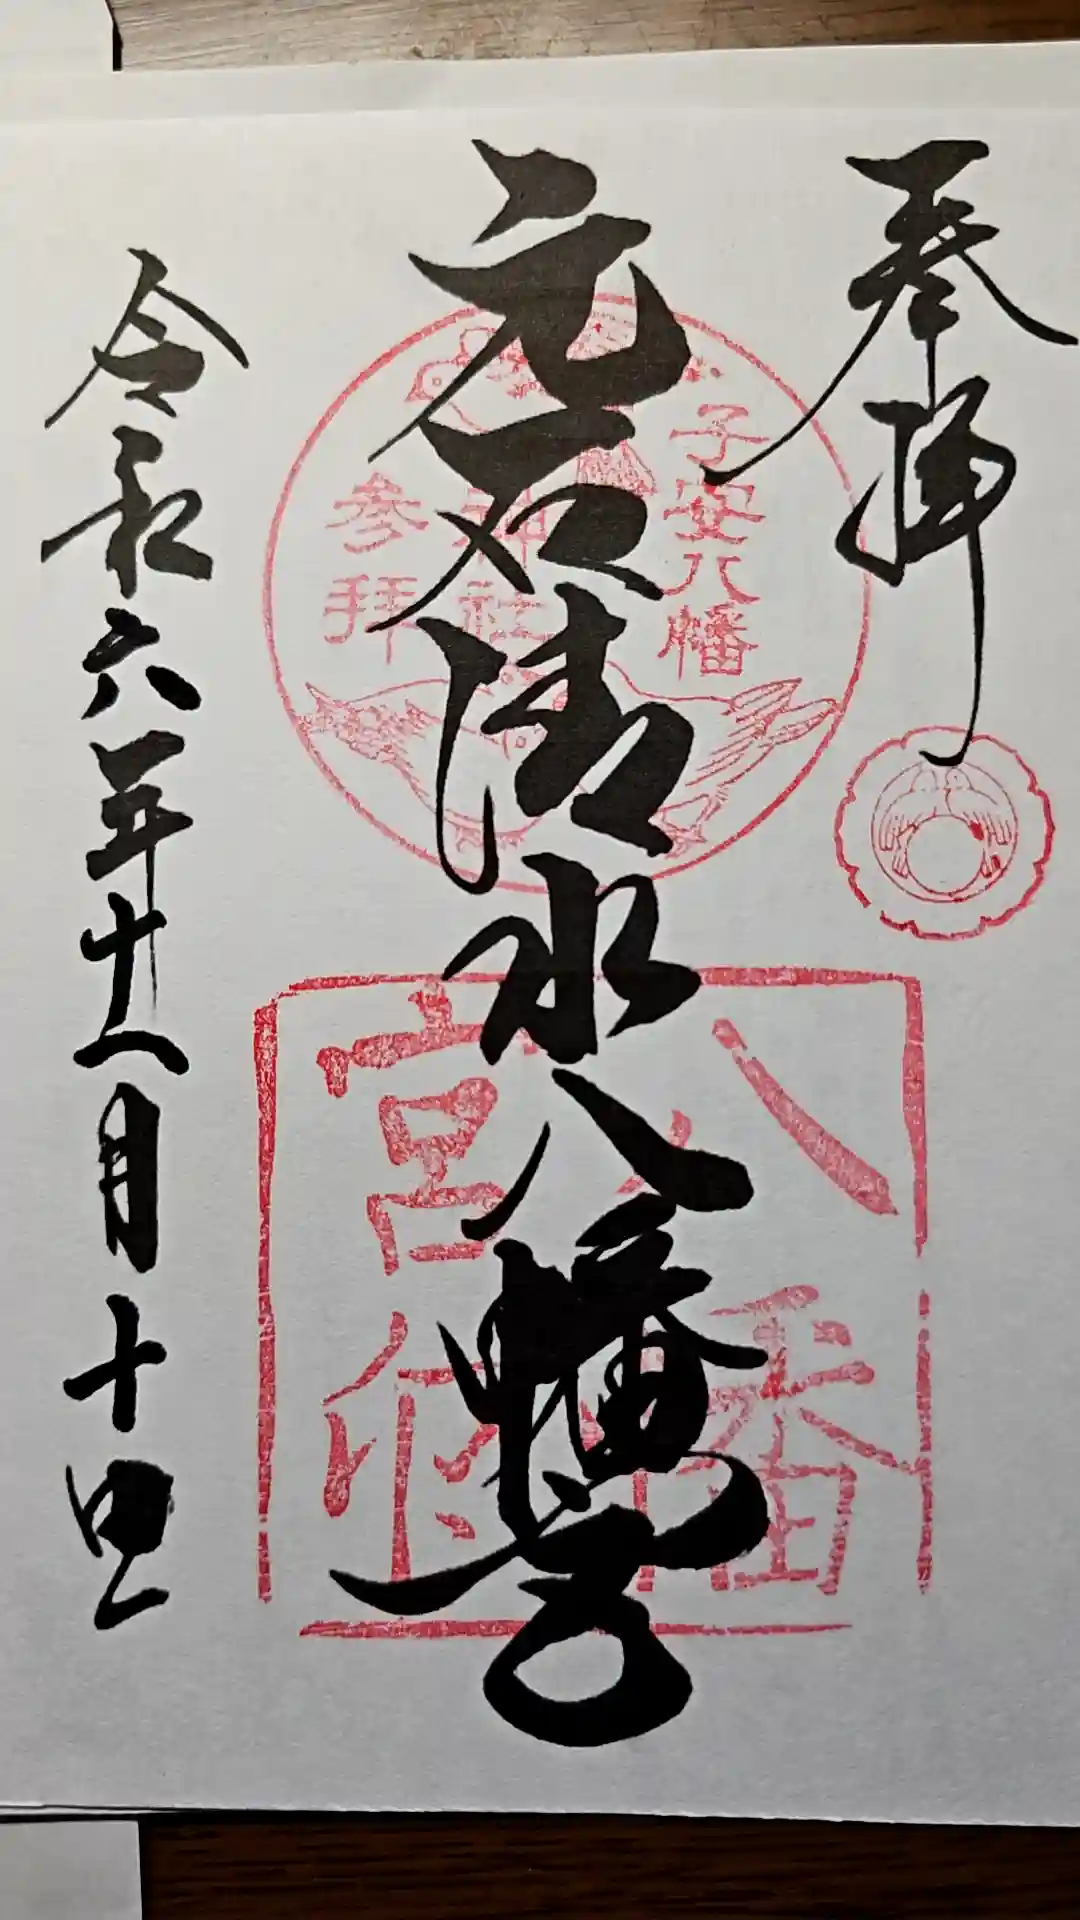 奉拝
元石清水八幡宮
令和六年十二月十日
子安八幡
神社
参拝
八幡
宮印